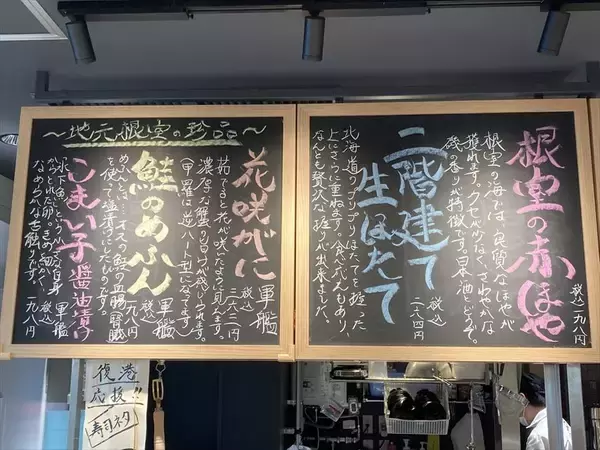 根室の赤ほや
税込一九八円
根室の海では良質なほやが
獲れます。クセが少なく、さわやかな
磯の香りが特徴です。日本酒とどうぞ。
二階建て
生ほたて
税込
二八四円
北海道のプリプリほたてを握った
上にさらに重ねます。食べごたえもあり、
なんとも贅沢な握りが出来ました。
〜地元根室の珍品〜
花咲がに
軍艦
税込
三六三円
茹でると花が咲いたように見えます。
濃厚な蟹の旨みが感じられます。
(甲羅は逆ハート型になってます)
鮭のめふん
軍艦
税込
一九八円
めふんとは…オスの鮭の血腸(腎臓)
を使って塩漬けにしたものです。
こまい子醤油漬け
軍艦
税込
一九八円
氷下魚という小ぶりな白身
からとれた卵。きめ細かく、
なめらかな舌触りです。
復港
応援!!
寿司ネタ